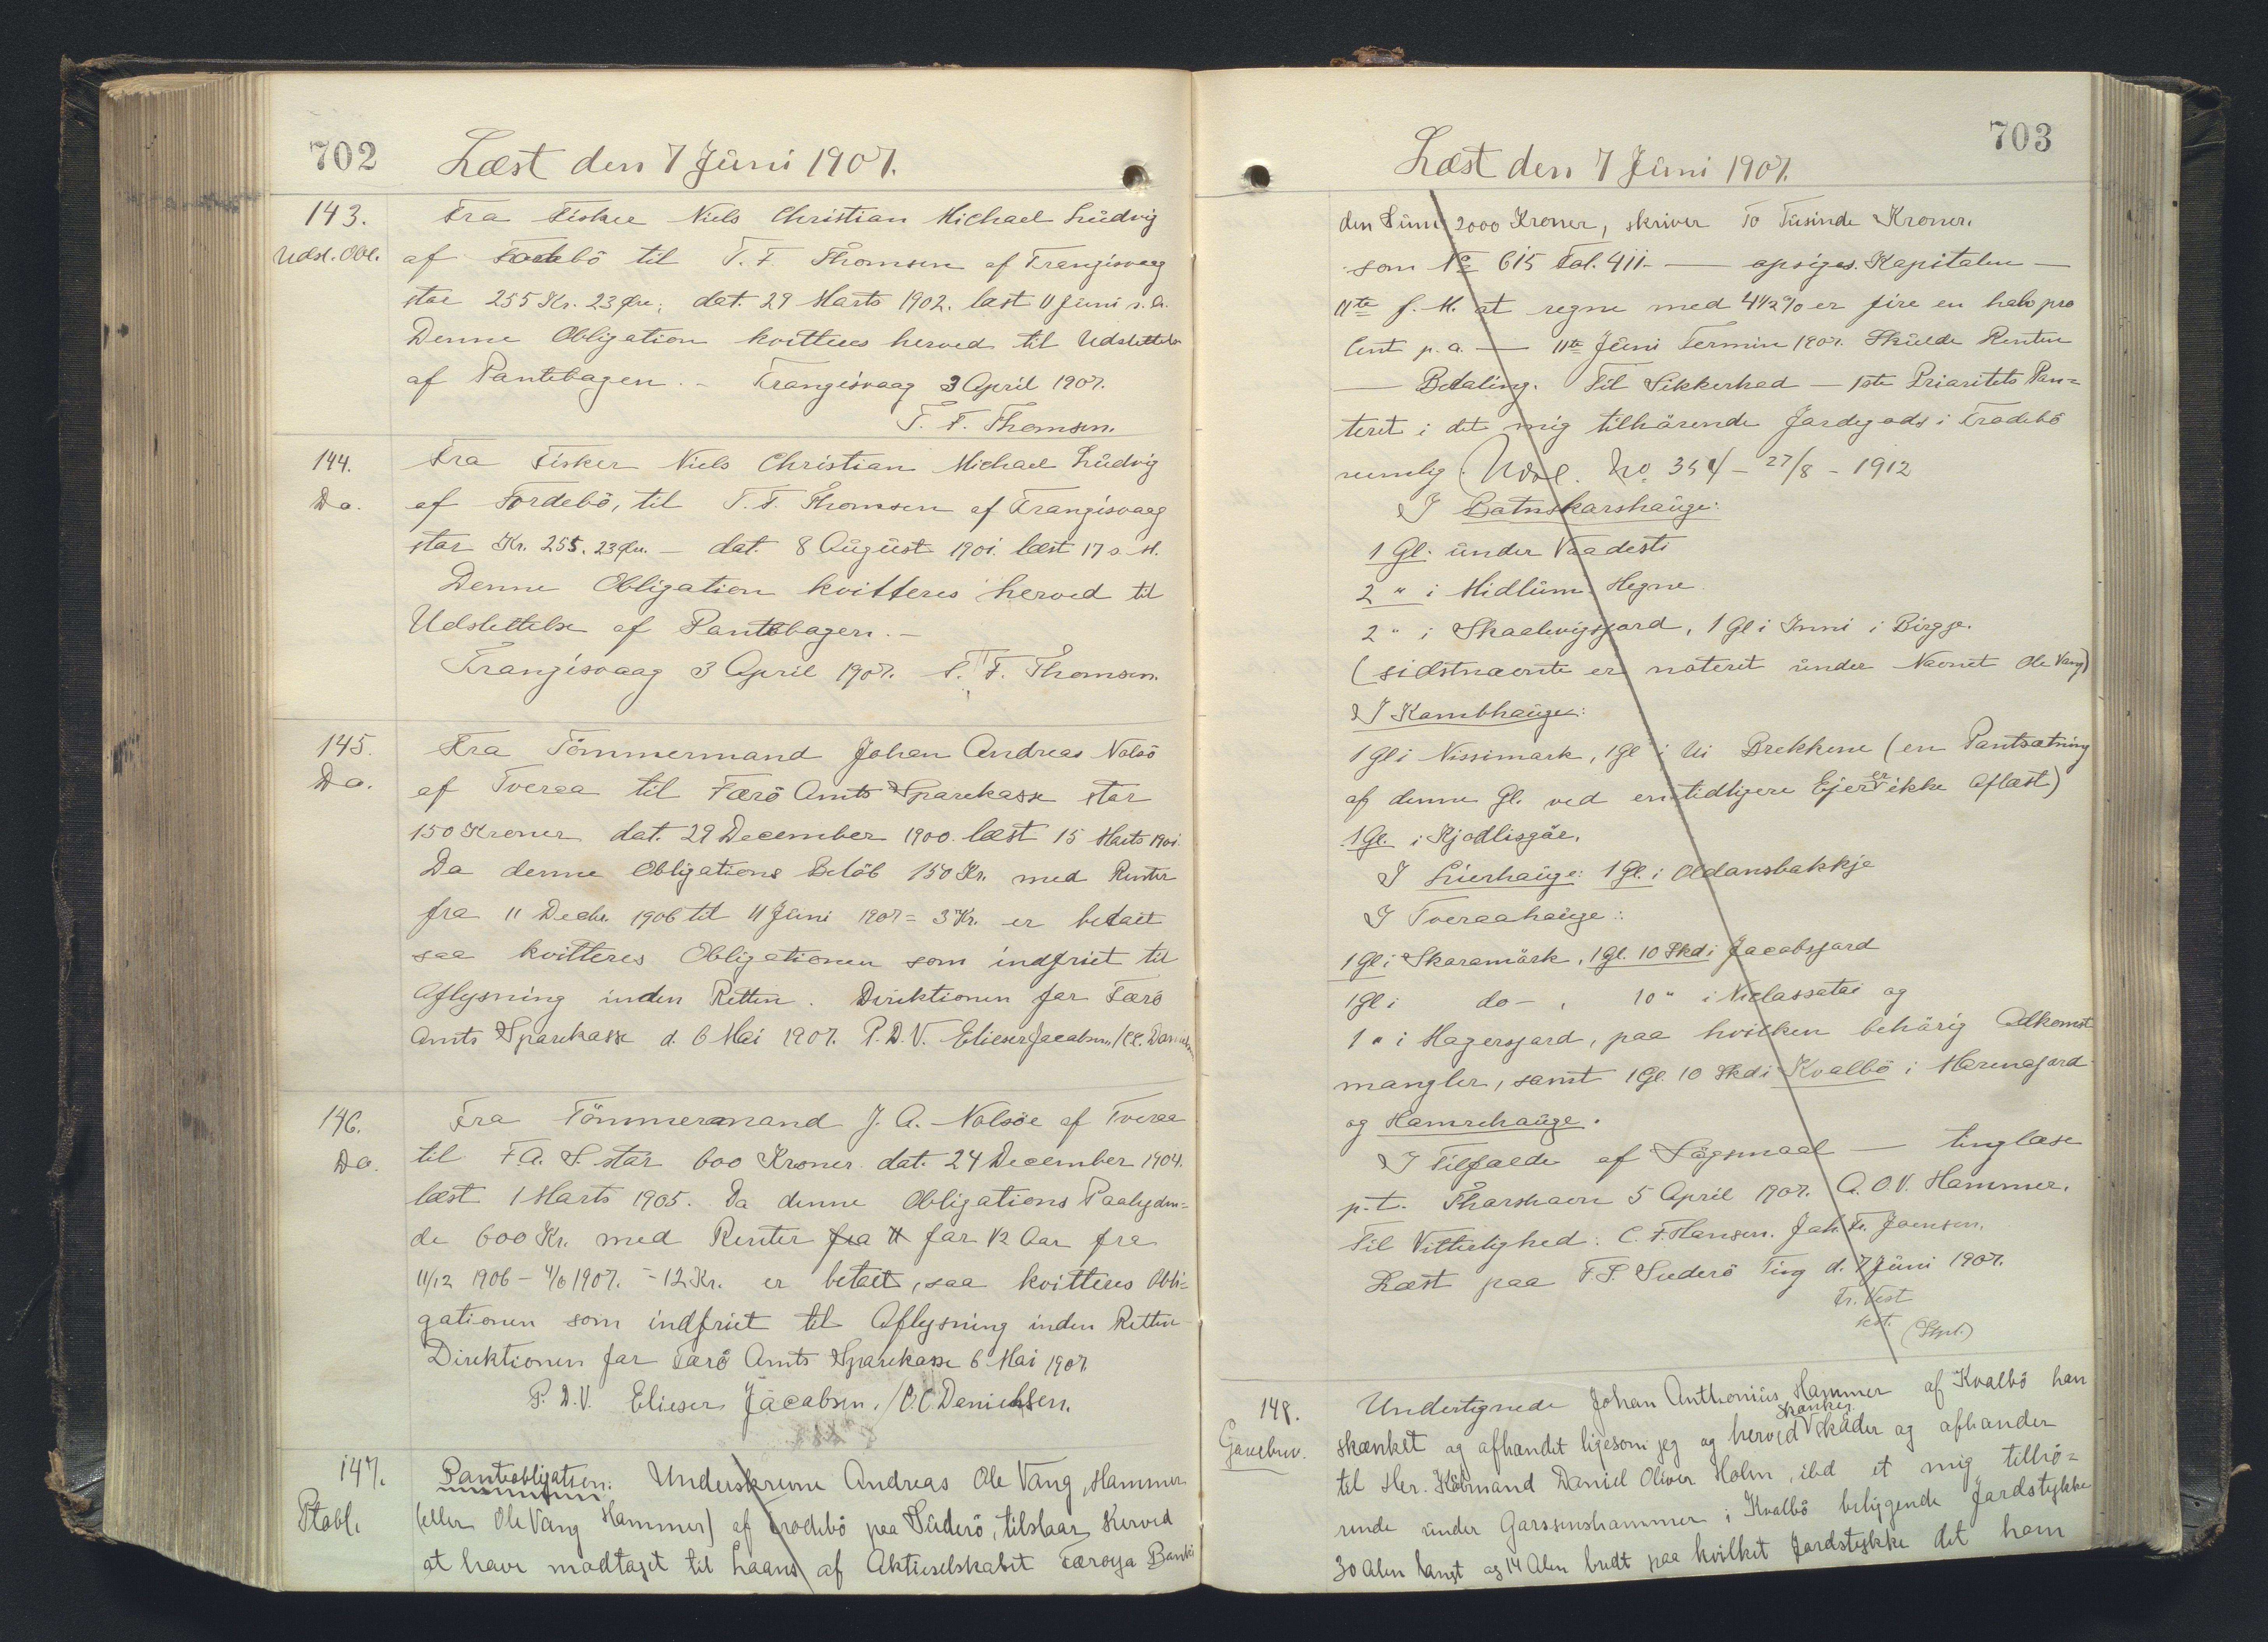 702
Læst den 7 Juni 1907.
143.
Udsl. Obl.
Fra Fisker Niels Christian Michael Ludvig
af Fordebö til T. F. Thomsen af Trangisvaag
stor 255 Kr. 23 Øre, dat. 29 Marts 1902. læst 11 Juni s. A.
Denne Obligation kvitteres herved til Udslettelse
af Pantebogen. - Trangisvaag 3 April 1907.
T. F. Thomsen.
144.
Do.
Fra Fisker Niels Christian Michael Ludvig
af Fordebö, til T. F. Thomsen af Trangisvaag
stor Kr. 255. 23 Øre. - dat. 8 August 1901. læst 17 s. M.
Denne Obligation kvitteres herved til
Udslettelse af Pantebogen. -
Trangisvaag 3 April 1907. T. F. Thomsen.
145.
Do.
Fra Tömmermand Johan Andreas Nolsö
af Tveraa til Færö Amts Sparekasse stor
150 Kroner dat. 29 December 1900. læst 15 Marts 1901.
Da denne Obligations Belöb 150 Kr. med Renter
fra 11 Decbr. 1906 til 11 Juni 1907 = 3 Kr. er betalt
saa kvitteres Obligationen som indfriet til
Aflysning inden Retten. Direktionen for Færö
Amts Sparekasse d. 6 Mai 1907. P. D. V. Elieser Jacobsen / C.C. Danielsen
146.
Do.
Fra Tömmermand J. A. Nolsöe af Tveraa
til F. A. S. stor 600 Kroner dat. 24 December 1904.
læst 1 Marts 1905. Da denne Obligations Paalyden=
de 600 Kr. med Renter fra 11 for 1/2 Aar fra
11/12 1906 - 11/6 1907. = 12 Kr. er betalt, saa kvitteres Obli=
gationen som indfriet til Aflysning inden Retten
Direktionen for Færö Amts Sparekasse 6 Mai 1907.
P. D. V. Elieser Jacobsen. / C. C. Danielsen.
147.
Ptobl.
Panteobligation: Underskrevne Andreas Ole Vang, Hammer
(eller Ole Vang Hammer) af Frodebö paa Suderö, tilstaar herved
at have modtaget til Laans af Aktieselskabet Færoya Banki
703
Læst den 7 Juni 1907.
den Sum 2000 Kroner, skriver To Tusinde Kroner.
som No 615 Fol. 411. — opsiges. Kapitalen —
11te f. M. at regne med 4 1/2 % er fire en halv pro
Cent p. a. — 11te Juni Termin 1907. Skulde Renten
— Betaling. Til Sikkerhed — 1ste Prioritets Pan=
teret i det mig tilhörende Jordegods i Frodebö
nemlig: Udsl. No. 354 - 27/8 - 1912
I Botnskarshauge:
1 Gl. under Vaadesti
2 " i Midlum Hegne.
2 " i Skaalevigsjord, 1 Gl i Inni i Birgje.
(sidstnævnte er noteret under Navnet Ole Vang)
I Kambhauge:
1 Gl i Nissimark, 1 Gl i Ui Brekkene (en Pantsætning
af denne Gl. ved en tidligere Ejer er ikke aflæst)
1 Gl. i Kjodlisgöe.
I Lierhauge: 1 Gl. i Oldansbakkje
I Tveraahauge:
1 Gl i Skaramörk, 1 Gl. 10 Skd i Jacobsjord
1 Gl i do - , 10 " i Niclassatei og
1 " i Hagersjord, paa hvilken behörig Adkomst
mangler, samt 1 Gl. 10 Skd i Kvalbö i Marenajord
og Hamrehauge.
I Tilfælde af Sögsmaal — tinglæse
p. t. Thorshavn 5 April 1907. A. O. V. Hammer.
Til Vitterlighed: C. F. Hansen. Joh. Fr. Joensen.
Læst paa F. S. Suderö Ting d. 7 Juni 1907.
Fr. Vest
kst. (Sgl.)
148.
Gavebrev.
Undertegnede Johan Anthonius Hammer af Kvalbö har
skænket og afhændet ligesom jeg og herved skænker skøder og afhænder
til Hr. Köbmand Daniel Oliver Holm, ibd et mig tilhö=
rende under Garssenshammer i Kvalbö beliggende Jordstykke
30 Alen langt og 14 Alen bredt paa hvilket Jordstykke det ham